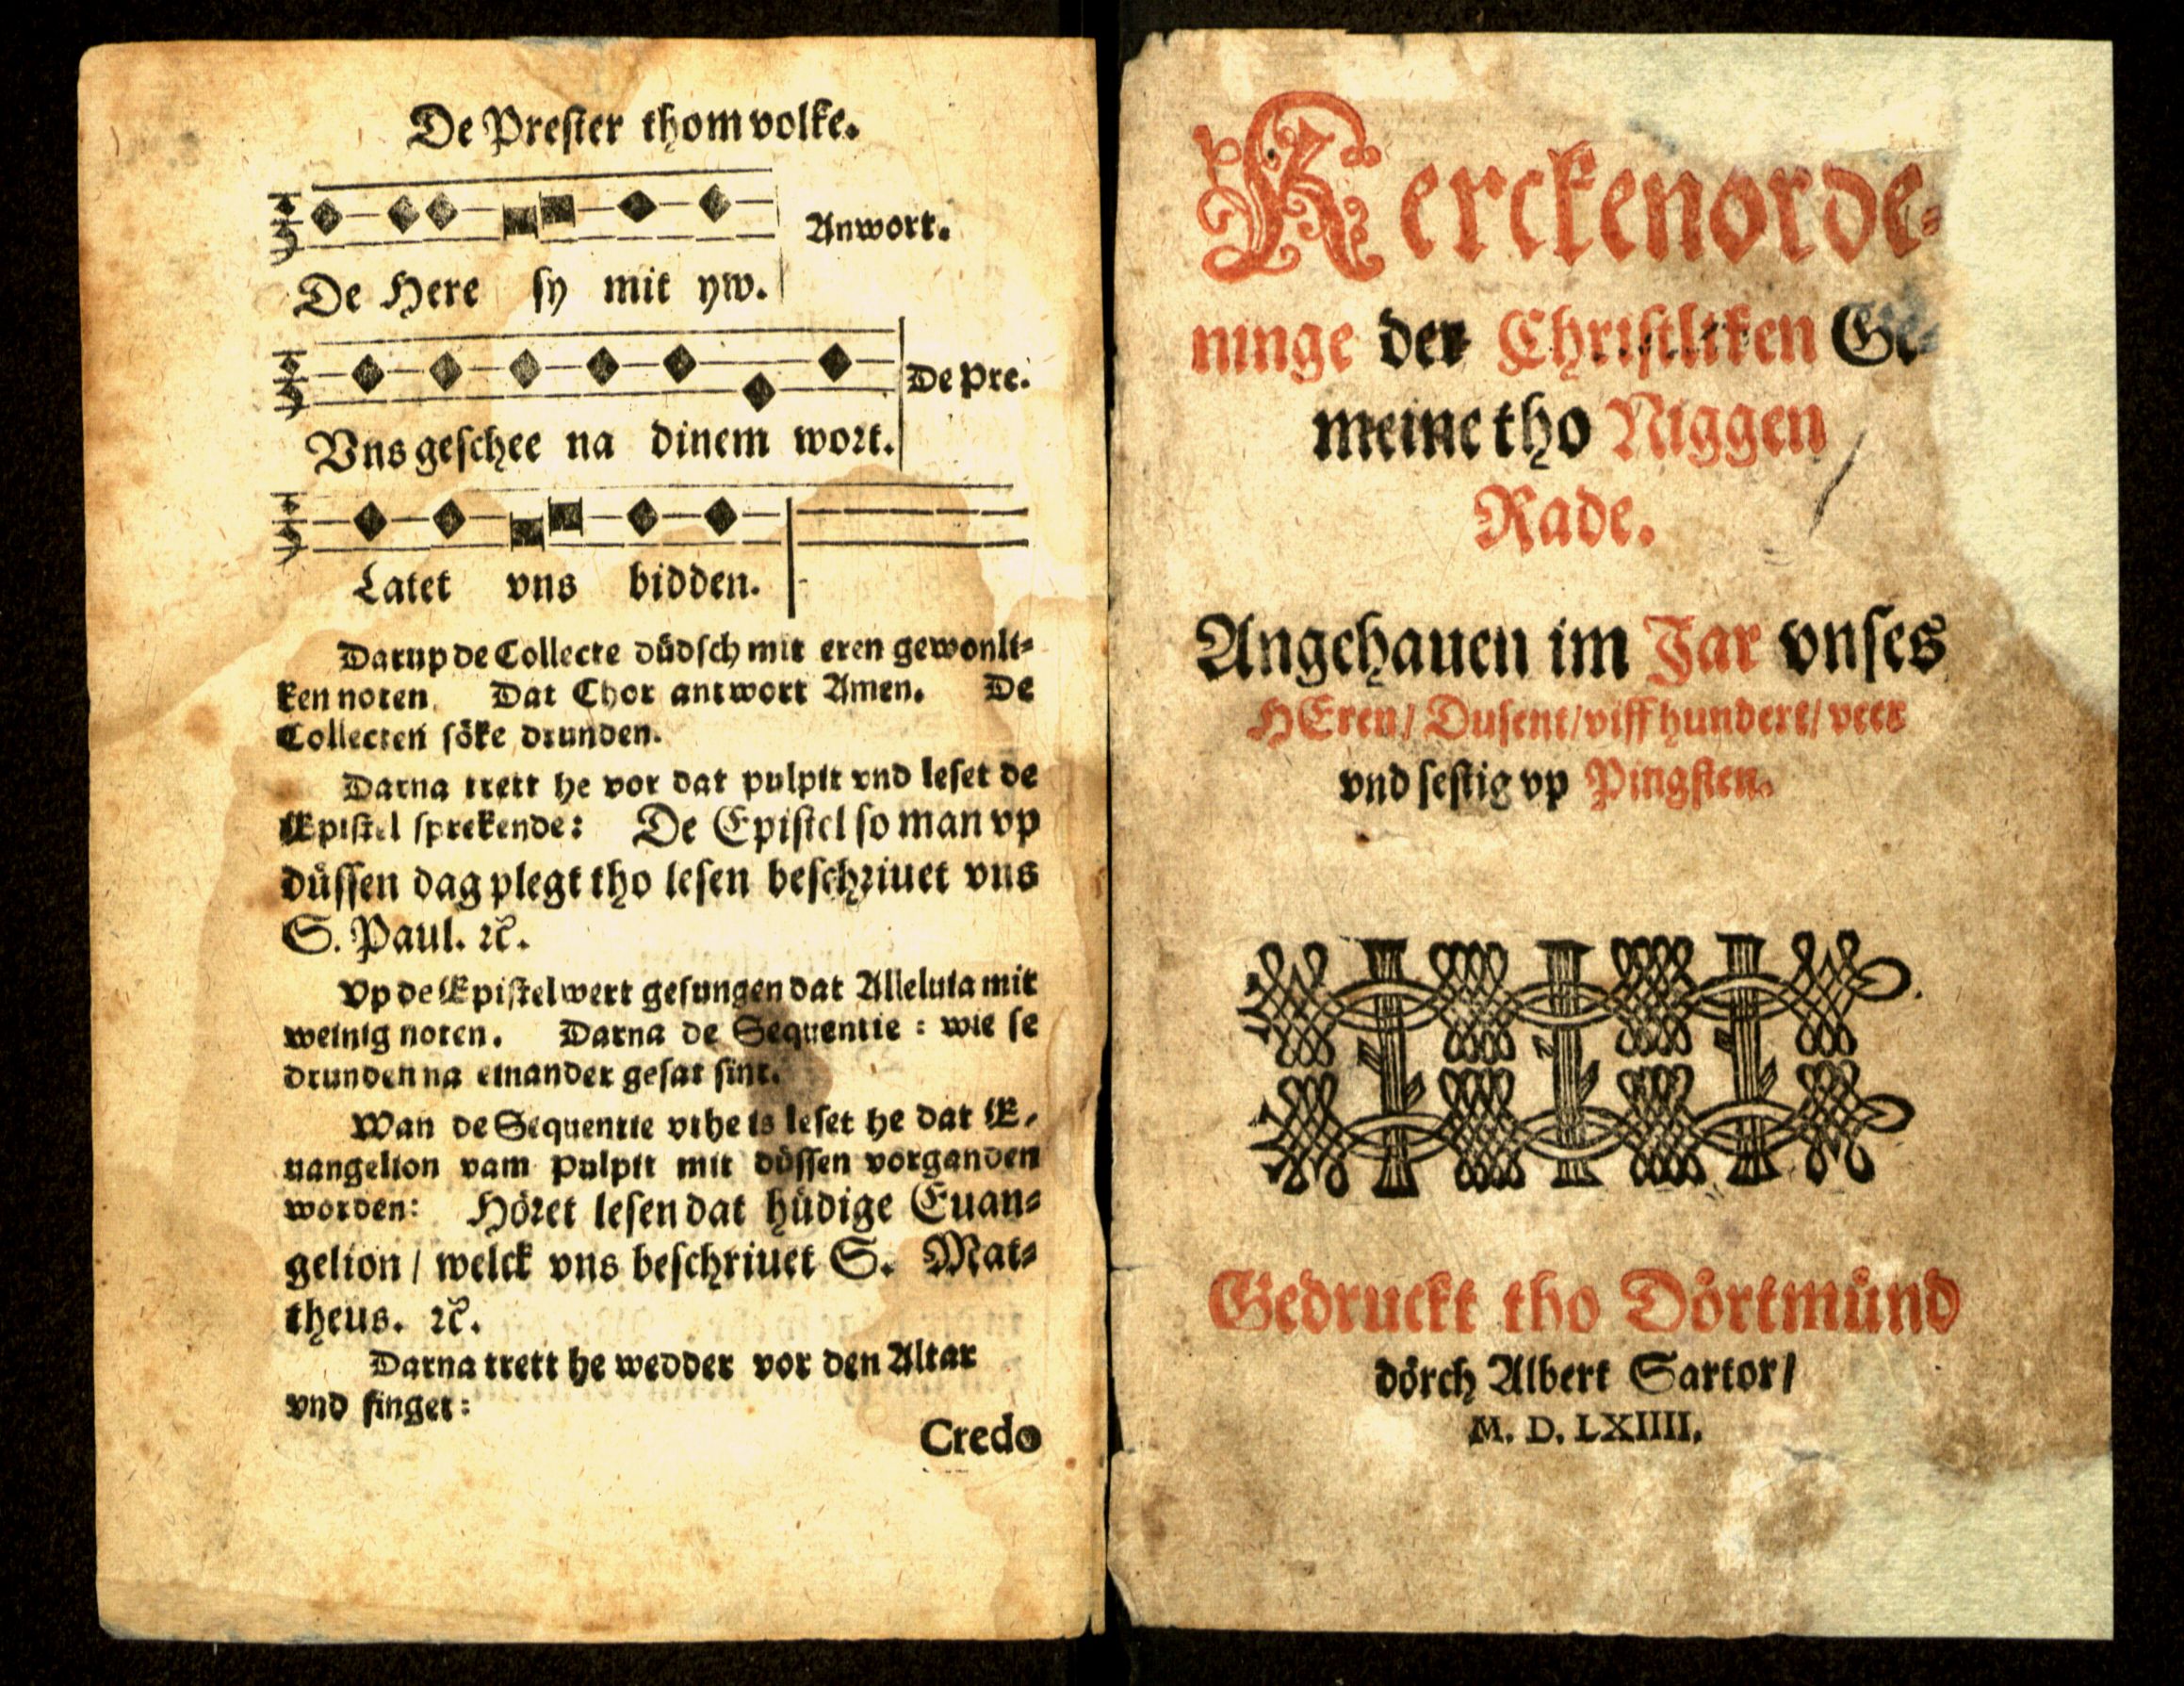 De Prester thom volke.
Anwort.
De Here sy mit yw.
De Pre.
Vns geschee na dinem wort.
Latet vns bidden.
Darup de Collecte düdsch mit eren gewonli-
ken noten. Dat Chor antwort Amen. De
Collecten söke drunden.
Darna trett he vor dat pulpit vnd leset de
Epistel sprekende: De Epistel so man vp
düssen dag plegt tho lesen beschriuet vns
S. Paul. ꝛc̃.
Vp de Epistel wert gesungen dat Alleluia mit
weinig noten. Darna de Sequentie : wie se
drunden na einander gesat sint.
Wan de Sequentie vthe is leset he dat E-
uangelion vam pulpit mit düssen vorganden
worden: Höret lesen dat hüdige Euan-
gelion / welck vns beschriuet S. Mat-
theus. ꝛc̃.
Darna trett he wedder vor den Altar
vnd singet:
Credo
Kerckenorde-
ninge der Christliken Ge-
meine tho Niggen
Rade.
Angehauen im Jar vnses
HEren / Dusent / viff hundert / veer
vnd sestig vp Pingsten.
Gedruckt tho Dörtmünd
dörch Albert Sartor /
M. D. LXIIII.